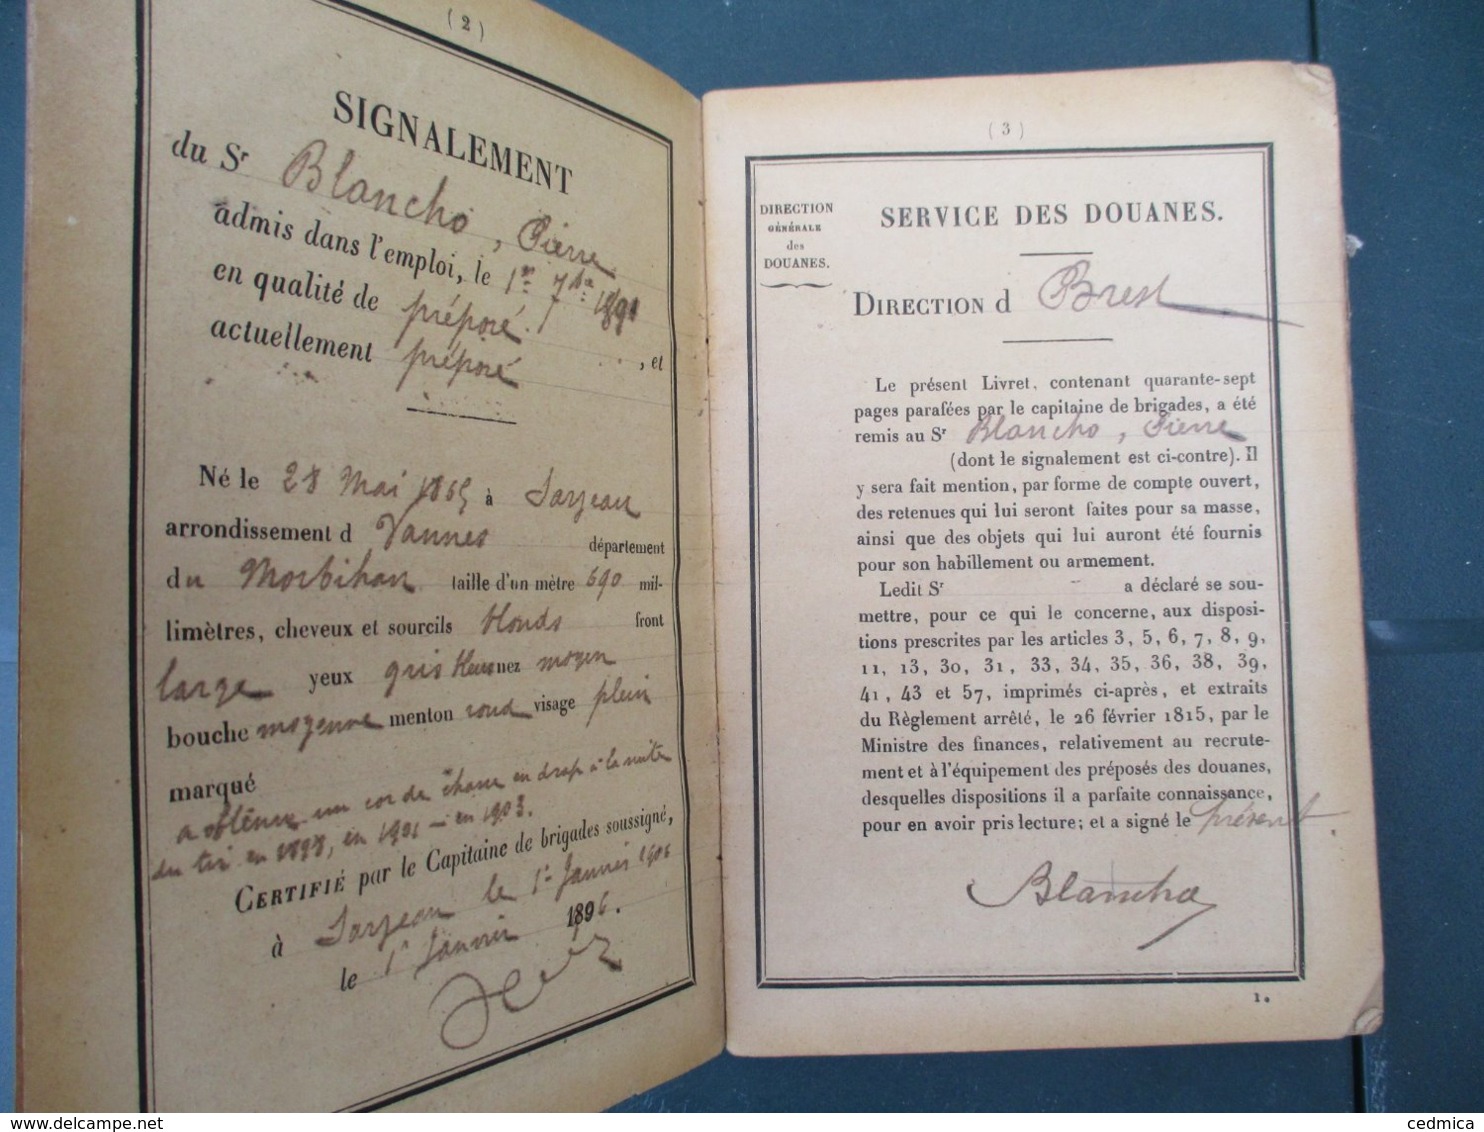 ( 2 )
SIGNALEMENT
du Sr Blancho, Pierre
admis dans l'emploi, le 1er 7bre 1891
en qualité de préposé. , et
actuellement préposé
Né le 28 Mai 1865 à Sarzeau
arrondissement d Vannes département
du Morbihan taille d'un mètre 690 mil-
limètres, cheveux et sourcils blonds front
large yeux gris bleus nez moyen
bouche moyenne menton rond visage plein
marqué
a obtenu un cor de chasse en drap à la suite
du tir en 1898, en 1901 – en 1903.
CERTIFIÉ par le Capitaine de brigades soussigné,
à Sarzeau le 1er Janvier 1906
le 1er Janvier 1896.
( 3 )
DIRECTION
GÉNÉRALE
des
DOUANES.
SERVICE DES DOUANES.
DIRECTION d Brest
Le présent Livret, contenant quarante-sept
pages parafées par le capitaine de brigades, a été
remis au Sr Blancho, Pierre
(dont le signalement est ci-contre). Il
y sera fait mention, par forme de compte ouvert,
des retenues qui lui seront faites pour sa masse,
ainsi que des objets qui lui auront été fournis
pour son habillement ou armement.
Ledit Sr a déclaré se sou-
mettre, pour ce qui le concerne, aux disposi-
tions prescrites par les articles 3, 5, 6, 7, 8, 9,
11, 13, 30, 31, 33, 34, 35, 36, 38, 39,
41, 43 et 57, imprimés ci-après, et extraits
du Règlement arrêté, le 26 février 1815, par le
Ministre des finances, relativement au recrute-
ment et à l'équipement des préposés des douanes,
desquelles dispositions il a parfaite connaissance,
pour en avoir pris lecture; et a signé le présent.
Blancho
1.
cedmica
delcampe.net